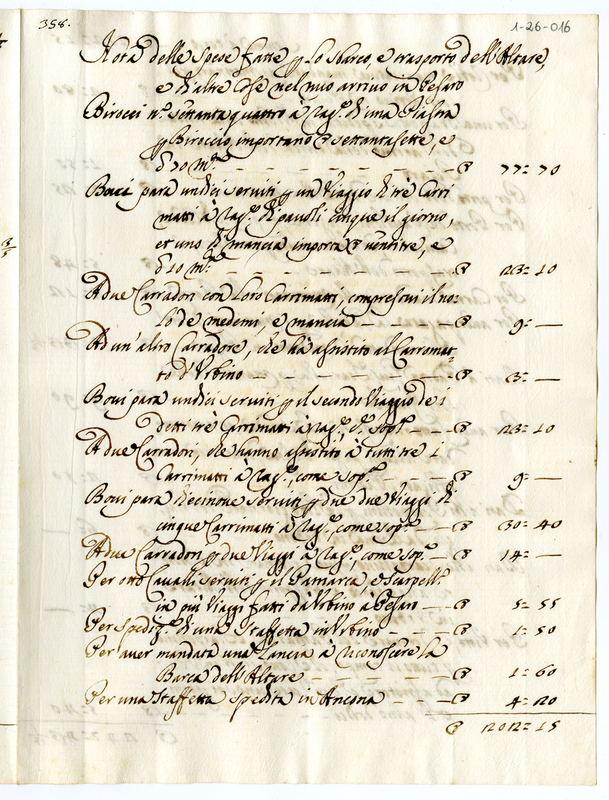 358.
1-26-016
Nota delle Spese fatte p lo sbarco, e trasporto dell'Altare,
e d'altre Cose nel mio arrivo in Pesaro
Birocci n.º settanta quattro à rag.e di una Piastra
p Biroccio, importano settantasette, e
70
77=70
Bovi para undici serviti p un Viaggio di trè Carri
matti à rag.e di pavoli cinque il giorno,
et uno di mancia importa ventitre, e
10
23=10
A due Carradori con loro Carrimatti, compresovi il no:
lo de medemi, e mancia
9=
Ad un'altro Carradore, che hà assistito al Carromat
to d'Urbino
3=
Bovi para undici serviti p il secondo Viaggio de i
detti trè Carrimatti à rag.e, sop.a
23=10
A due Carradori, che hanno assistito à tutti tre i
Carrimatti à rag.e, come sop.a
9=
Bovi para diecinove serviti p due Viaggi di
cinque Carrimatti à rag.e, come sop.a
30=40
A due Carradori p due Viaggi à rag.e, come sop.a
14=
Per otto Cavalli serviti p il Patriarca, e Scarpell.i
in più Viaggi fatti da Urbino à Pesaro
5=55
Per spediz.e di una Staffetta in Urbino
1=50
Per aver mandata una Lancia à riconoscere la
Barca dell'Altare
1=60
Per una Staffetta spedita in Ancona
4=20